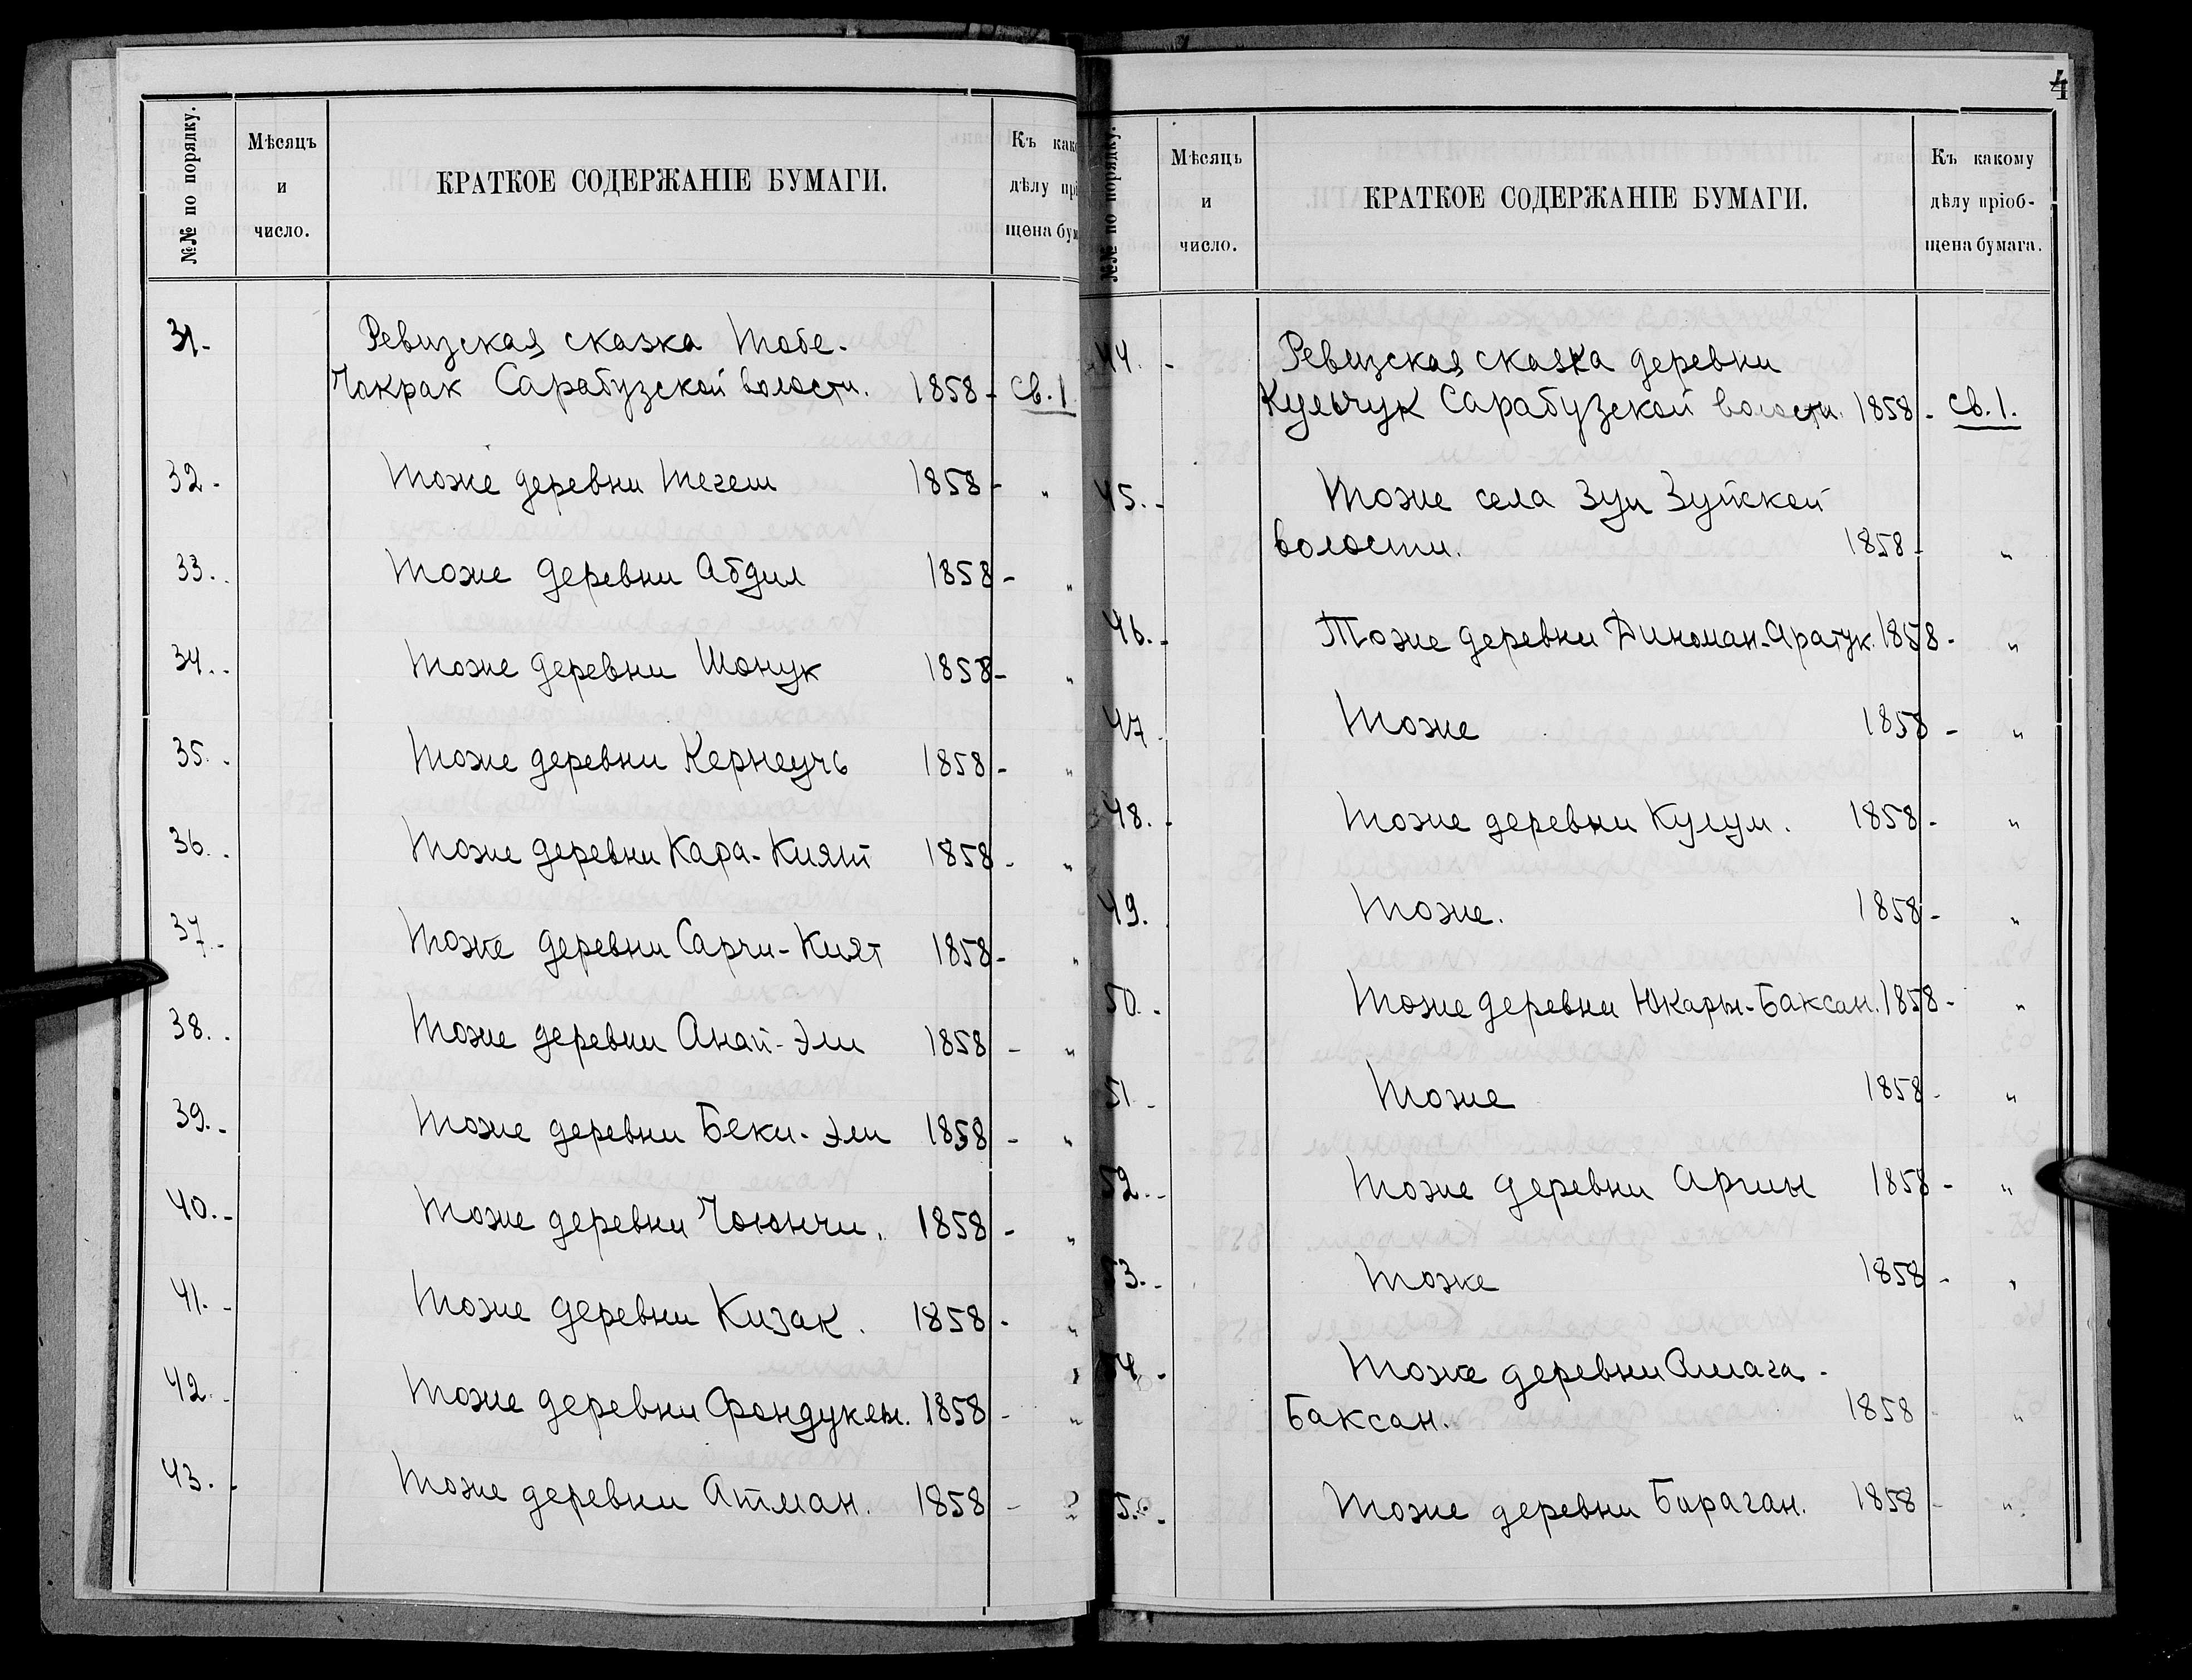 №№ по порядку.
Мѣсяцъ
и
число.
КРАТКОЕ СОДЕРЖАНІЕ БУМАГИ.
Къ како
дѣлу прі
щена бум
31.- Ревизская сказка Тобе-
Чокрак Сарабузской волости. 1858 - Св. 1
32.- Тоже деревни Тегеш 1858 - "
33.. Тоже деревни Абдил 1858 - "
34.- Тоже деревни Шонук 1858 - "
35.- Тоже деревни Кернеучь 1858 - "
36.- Тоже деревни Кара-Кият 1858 - "
37.- Тоже деревни Сарчи-Кият 1858 - "
38.. Тоже деревни Анай-Эли 1858 - "
39.- Тоже деревни Беки-Эли 1858 - "
40.- Тоже деревни Чоюнчи. 1858 - "
41.- Тоже деревни Кизак. 1858 - "
42.- Тоже деревни Фондукен. 1858 - "
43.- Тоже деревни Атман. 1858 -
4
№№ по порядку.
Мѣсяцъ
и
число.
КРАТКОЕ СОДЕРЖАНІЕ БУМАГИ.
Къ какому
дѣлу пріоб-
щена бумага.
44.- Ревизская сказка деревни
Кульчук Сарабузской волости. 1858 - Св. 1.
45.- Тоже села Зуи Зуйской
волости. 1858 - "
46.- Тоже деревни Аратук. 1858 - "
47- Тоже 1858 - "
48.- Тоже деревни Кулум. 1858 - "
49. Тоже. 1858 - "
50.- Тоже деревни Юкары-Баксан. 1858 - "
51- Тоже 1858 - "
52.- Тоже деревни Аргин 1858 - "
53.- Тоже 1858 - "
54.- Тоже деревни Ашага-
Баксан. 1858 - "
5.- Тоже деревни Бураган. 1858 - "